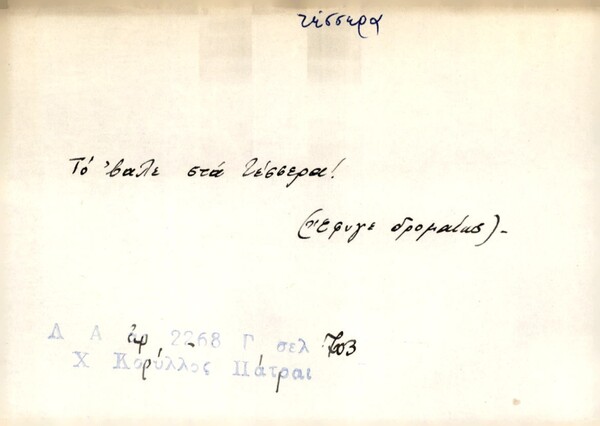 τέσσερα
Τό 'βαλε στά τέσσερα!
(Ἔφυγε δρομαίως)-
Λ Α ἀρ 2268 Γ σελ 703
Χ Κορύλλος Πάτραι